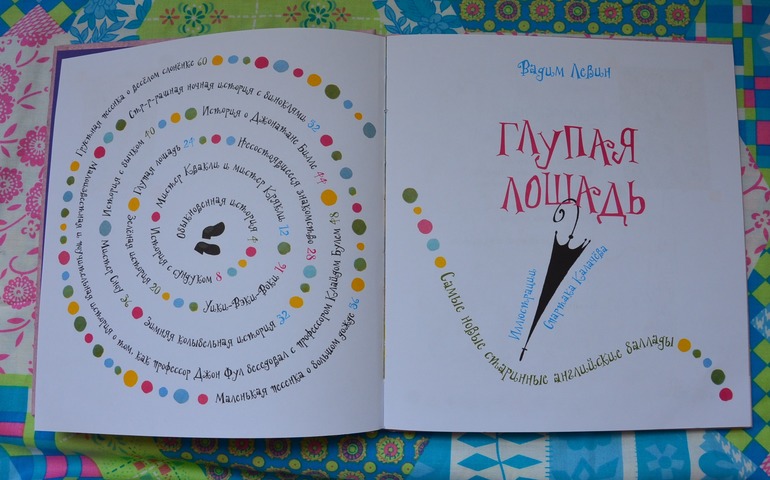 Обыкновенная история 4
История с сундуком 8
Мистер Квакли и мистер Крякли 12
Уики-Вэки-Воки 16
Зелёная история 20
Глупая лошадь 24
Несостоявшееся знакомство 28
Зимняя колыбельная история 32
Мистер Сноу 36
История с бычком 40
История о Джонатане Билле 44
и поучительная история о том, как профессор Джон Фул беседовал с профессором Клайдом Булем 48
Стр-р-рашная ночная история с биноклями 52
Маленькая песенка о большом дожде 56
Грустная песенка о весёлом слонёнке 60
Вадим Левин
ГЛУПАЯ
ЛОШАДЬ
Иллюстрации
Спартака Калачёва
Самые новые старинные английские баллады